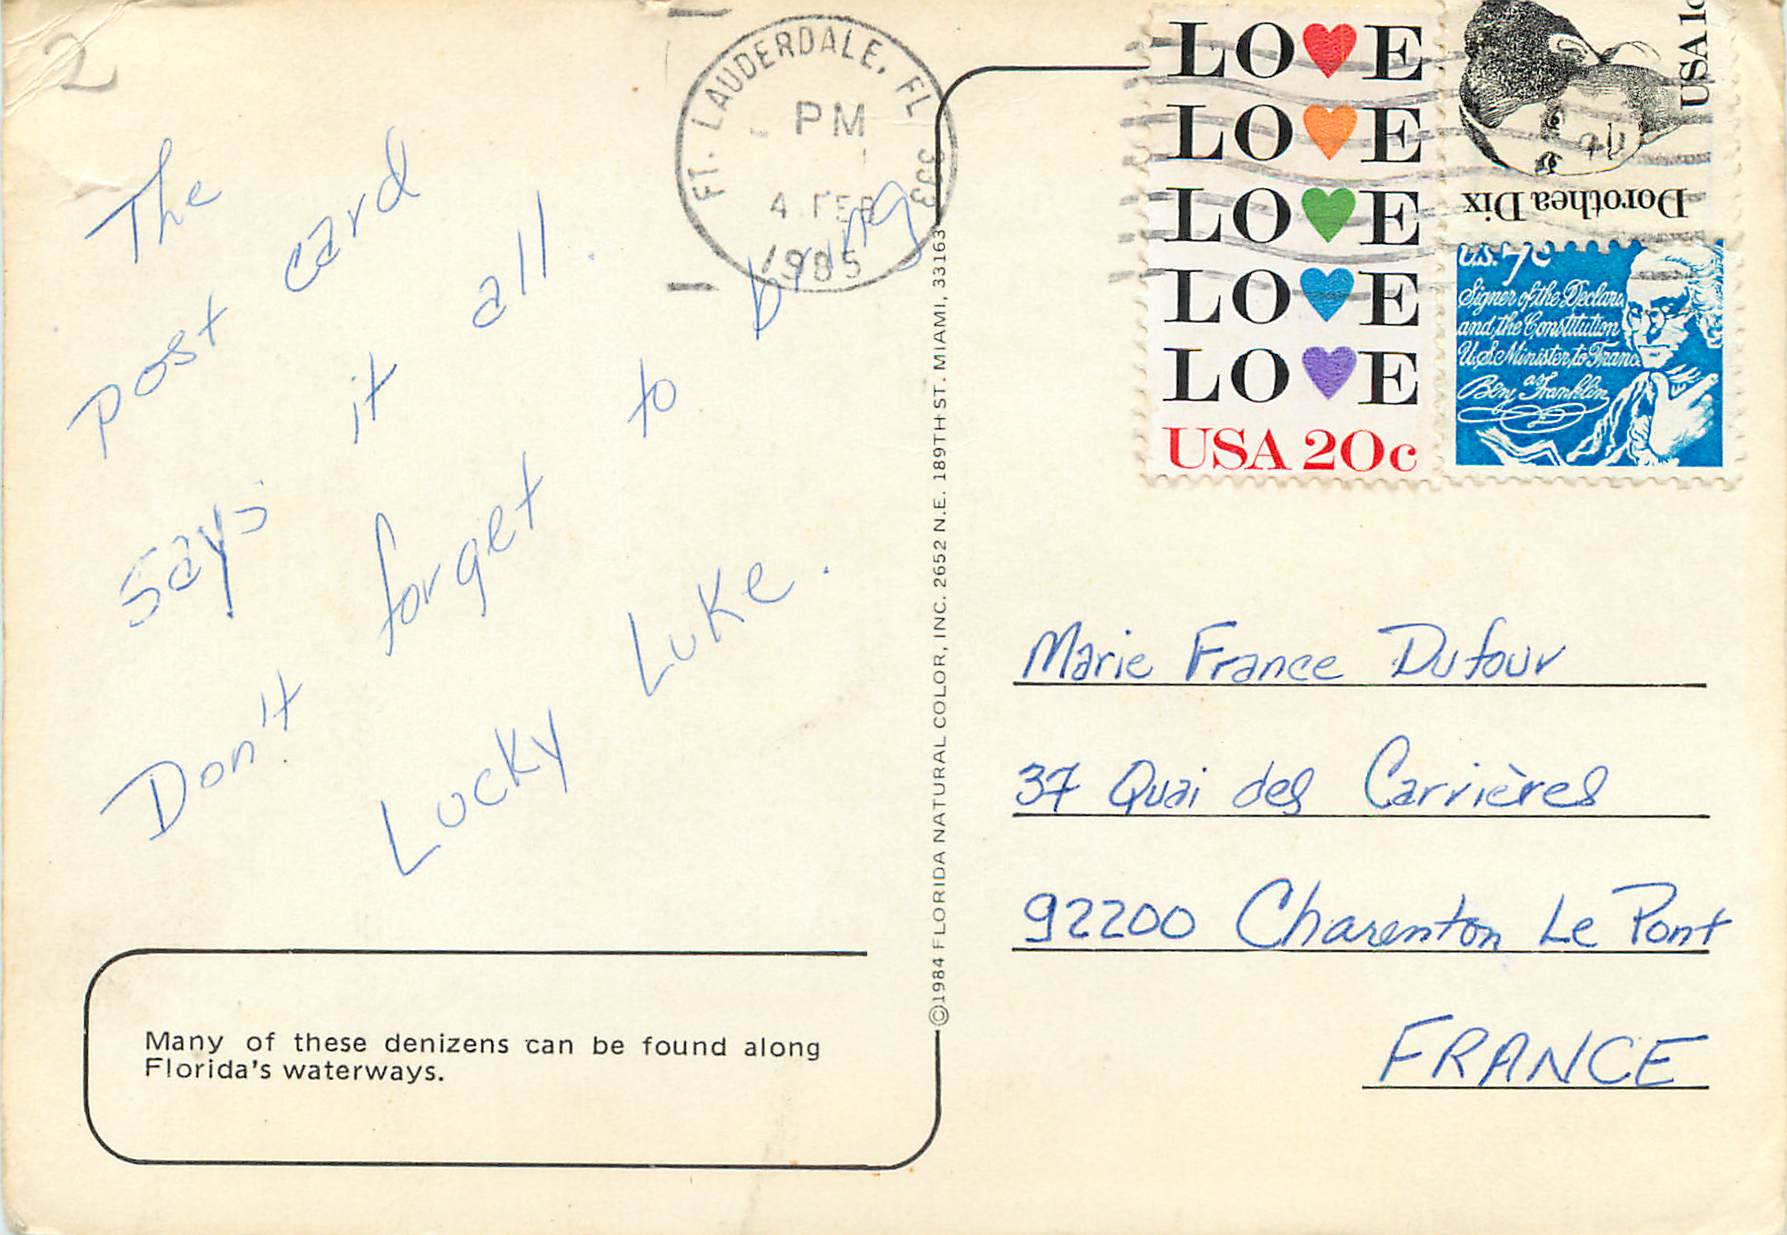 2
The
post card
says it all.
Don't forget to bring
Lucky Luke.
Many of these denizens can be found along
Florida's waterways.
FT. LAUDERDALE, FL 333
PM
4 FEB
1985
©1984 FLORIDA NATURAL COLOR, INC. 2652 N.E. 189TH ST. MIAMI, 33163
LOVE
LOVE
LOVE
LOVE
LOVE
USA 20c
USA 1c
Dorothea Dix
U.S. 7c
Signer of the Declara
and the Constitution
U.S. Minister to Franc
as
Benj Franklin
Marie France Dufour
37 Quai des Carrières
92200 Charenton Le Pont
FRANCE